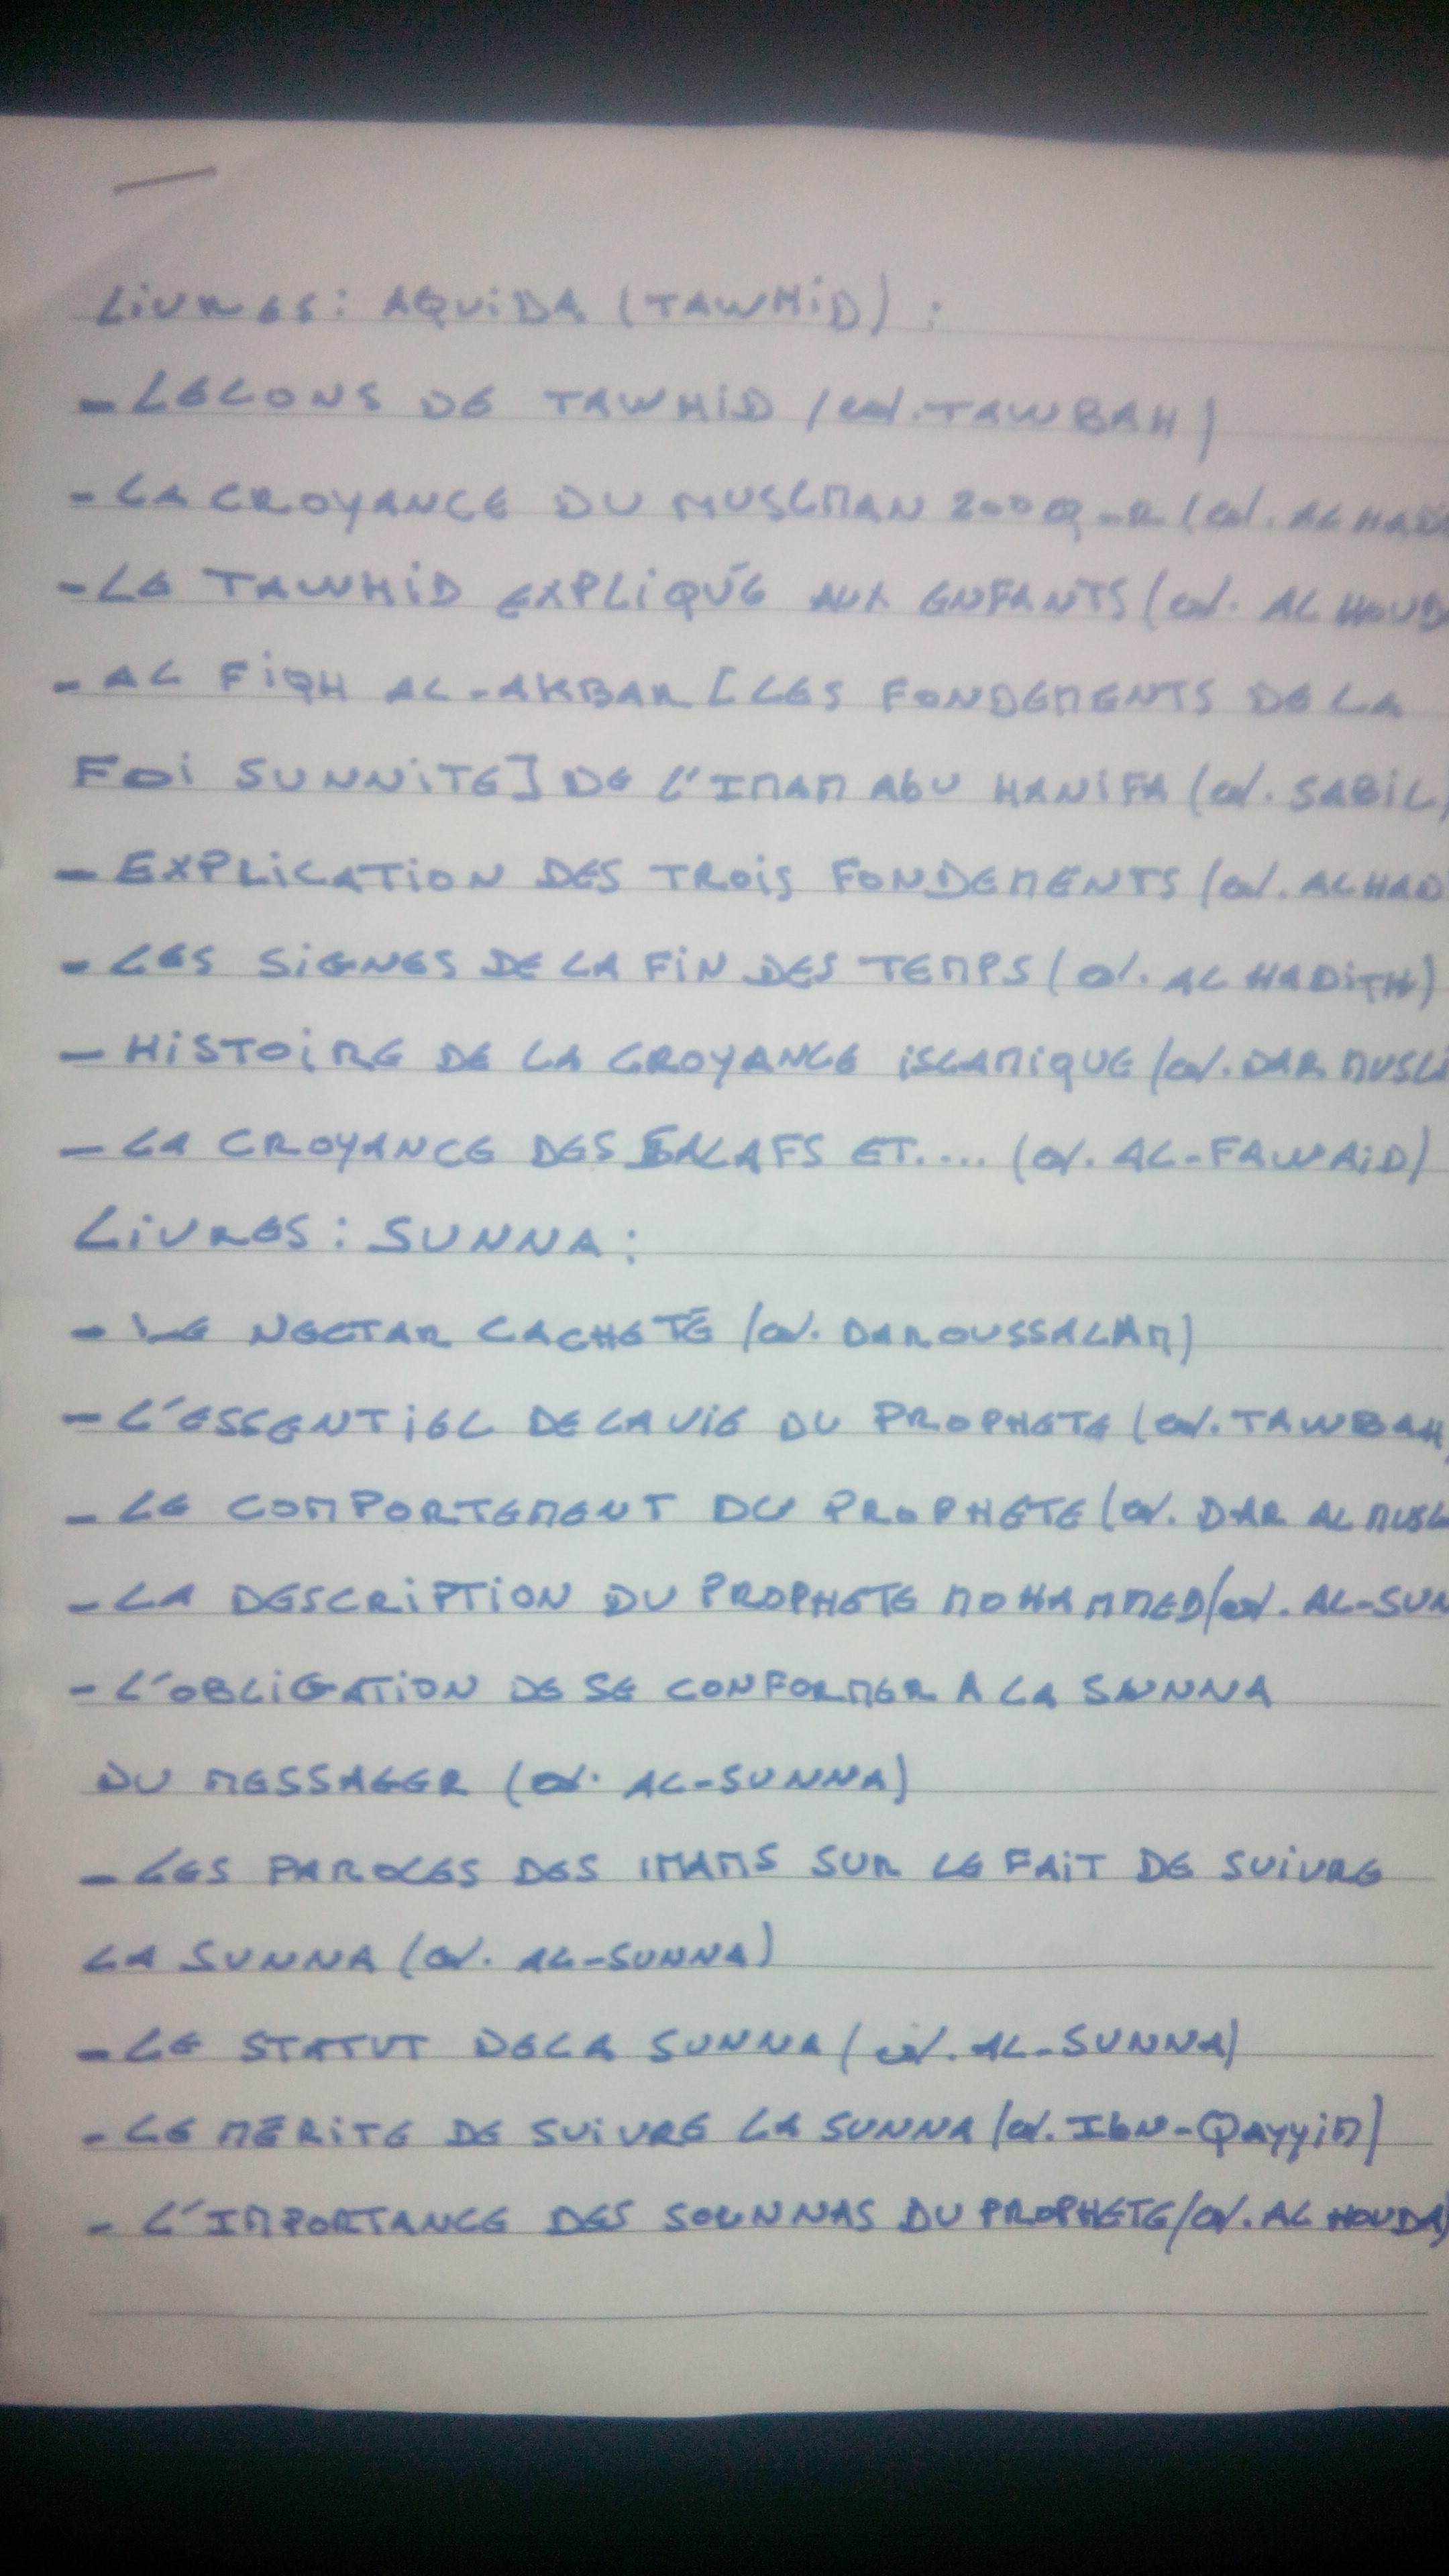 LIVRES : AQUIDA (TAWHID) :
- LECONS DE TAWHID (ed. TAWBAH)
- LA CROYANCE DU MUSLMAN 200 Q-R (ed. AL HADI
- LE TAWHID EXPLIQUÉ AUX ENFANTS (ed. AL HOUD
- AL FIQH AL-AKBAR [LES FONDEMENTS DE LA
FOI SUNNITE] DE L'IMAM ABU HANIFA (ed. SABIL)
- EXPLICATION DES TROIS FONDEMENTS (ed. AL HADI
- LES SIGNES DE LA FIN DES TEMPS (ed. AL HADITH)
- HISTOIRE DE LA CROYANCE ISLAMIQUE (ed. DAR MUSLI
- LA CROYANCE DES SALAFS ET.... (ed. AL-FAWAID)
LIVRES : SUNNA :
- LE NECTAR CACHETÉ (ed. DAROUSSALAM)
- L'ESSENTIEL DE LA VIE DU PROPHETE (ed. TAWBAH)
- LE COMPORTEMENT DU PROPHETE (ed. DAR AL MUSL
- LA DESCRIPTION DU PROPHETE MOHAMMED (ed. AL-SUN
- L'OBLIGATION DE SE CONFORMER A LA SUNNA
DU MESSAGER (ed. AL-SUNNA)
- LES PAROLES DES IMAMS SUR LE FAIT DE SUIVRE
LA SUNNA (ed. AL-SUNNA)
- LE STATUT DE LA SUNNA (ed. AL-SUNNA)
- LE MÉRITE DE SUIVRE LA SUNNA (ed. IBN-QAYYIM)
- L'IMPORTANCE DES SOUNNAS DU PROPHETE (ed. AL HOUDA)